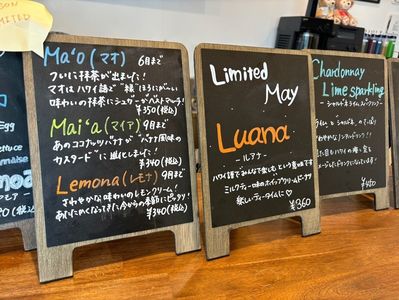 LIMITED
Ma'o (マオ) 6月まで
ついに抹茶が出ました!
マオはハワイ語で"緑"ほろにがい
味わいの抹茶にシュガーがベストマッチ!
¥350(税込)
Mai'a (マイア) 9月まで
あのココナッツバナナが"バナナ風味の
カスタード"に進化しました!
¥340(税込)
Lemona (レモナ) 9月まで
さわやかな味わいのレモンクリーム!
あたたかくなってきた今からの季節にピッタリ!
¥340(税込)
Limited
May
Luana
-ルアナ-
ハワイ語で"みんなで楽しむ"という意味です
ミルクティー味のホイップクリームドーナツ
楽しいティータイムに♡
¥360
Chardonnay
Lime sparkling
-シャルドネライムスパークリング-
¥450
Egg